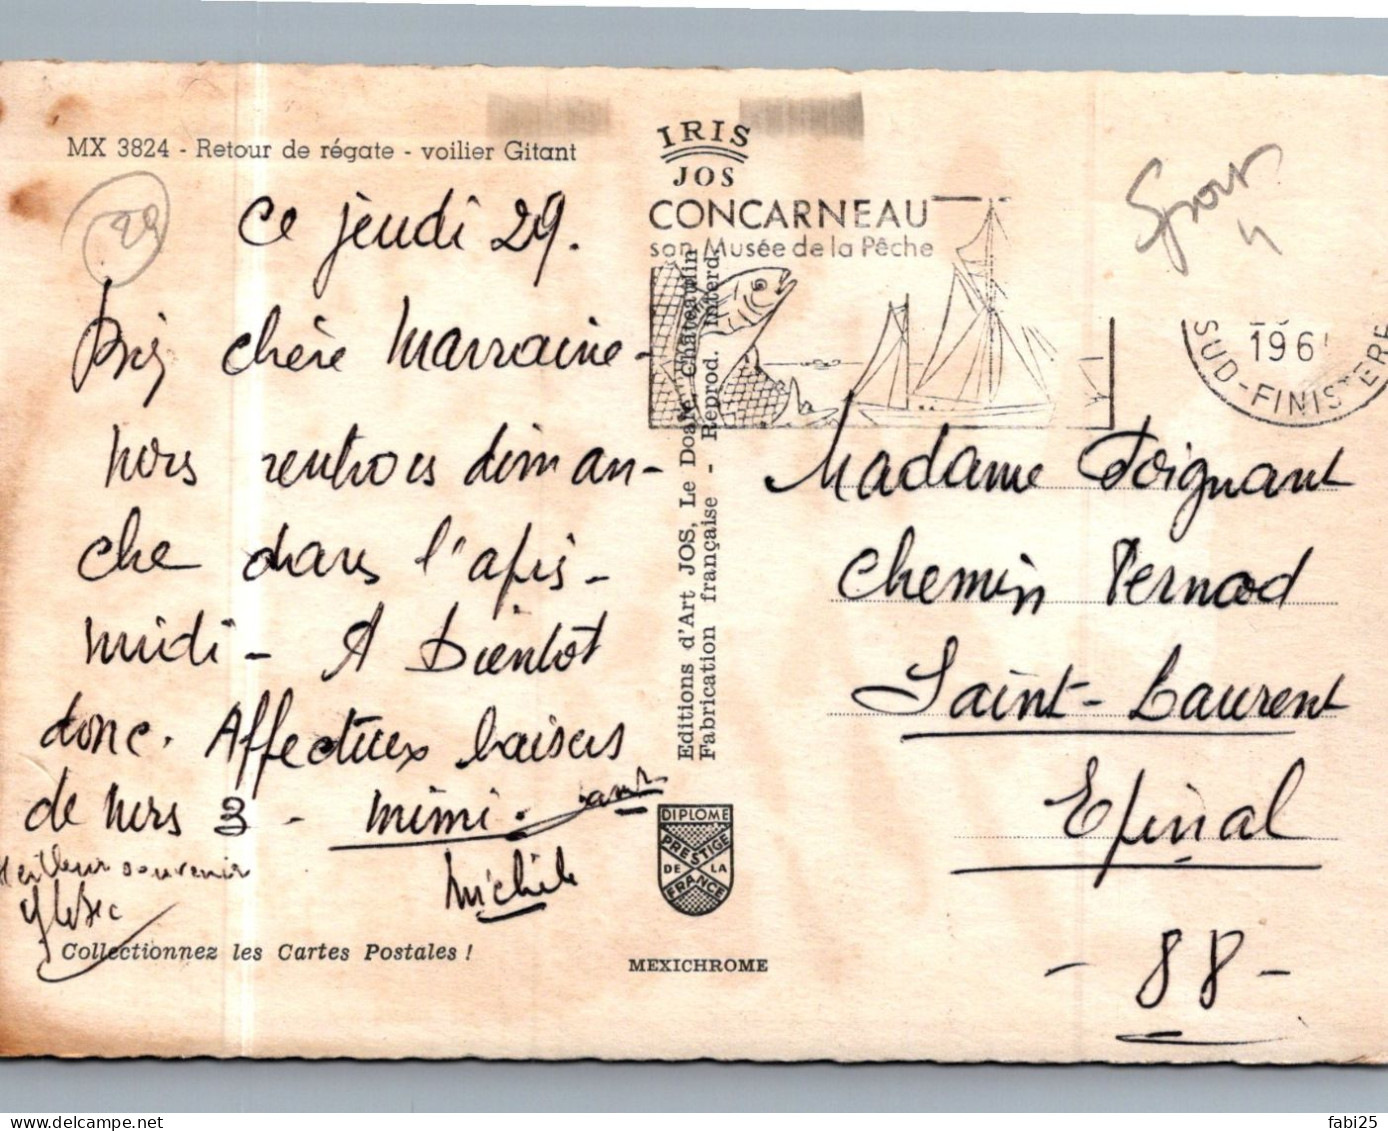 MX 3824 - Retour de régate - voilier Gitant
29
Ce jeudi 29.
chère Marraine -
nous rentrons diman-
che dans l'après-
midi - A bientôt
donc. Affectueux baisers
de nous 3 - Mimi.
Michèle
Meilleur souvenir
Collectionnez les Cartes Postales !
IRIS
JOS
CONCARNEAU
son Musée de la Pêche
Editions d'Art JOS, Le Doaré, Châteaulin
Fabrication française - Reprod. interd.
DIPLOME
PRESTIGE
DE LA
FRANCE
MEXICHROME
Sport
4
196
SUD-FINISTERE
Madame Poignant
Chemin Pernod
Saint-Laurent
Epinal
- 88 -
fabi25